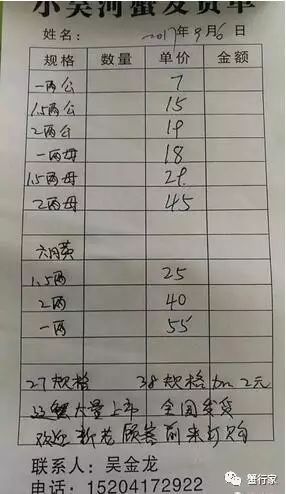 小吴河蟹发货单
姓名: 2017年9月6日
规格 数量 单价 金额
一两公 7
1.5两公 15
2两公 19
一两母 18
1.5两母 29
2两母 45
六月黄
1.5两 25
2两 40
一两 55
27规格 38规格加2元
辽蟹大量上市 全国发货
欢迎新老顾客前来订购
联系人: 吴金龙
电话: 15204172922
蟹行家